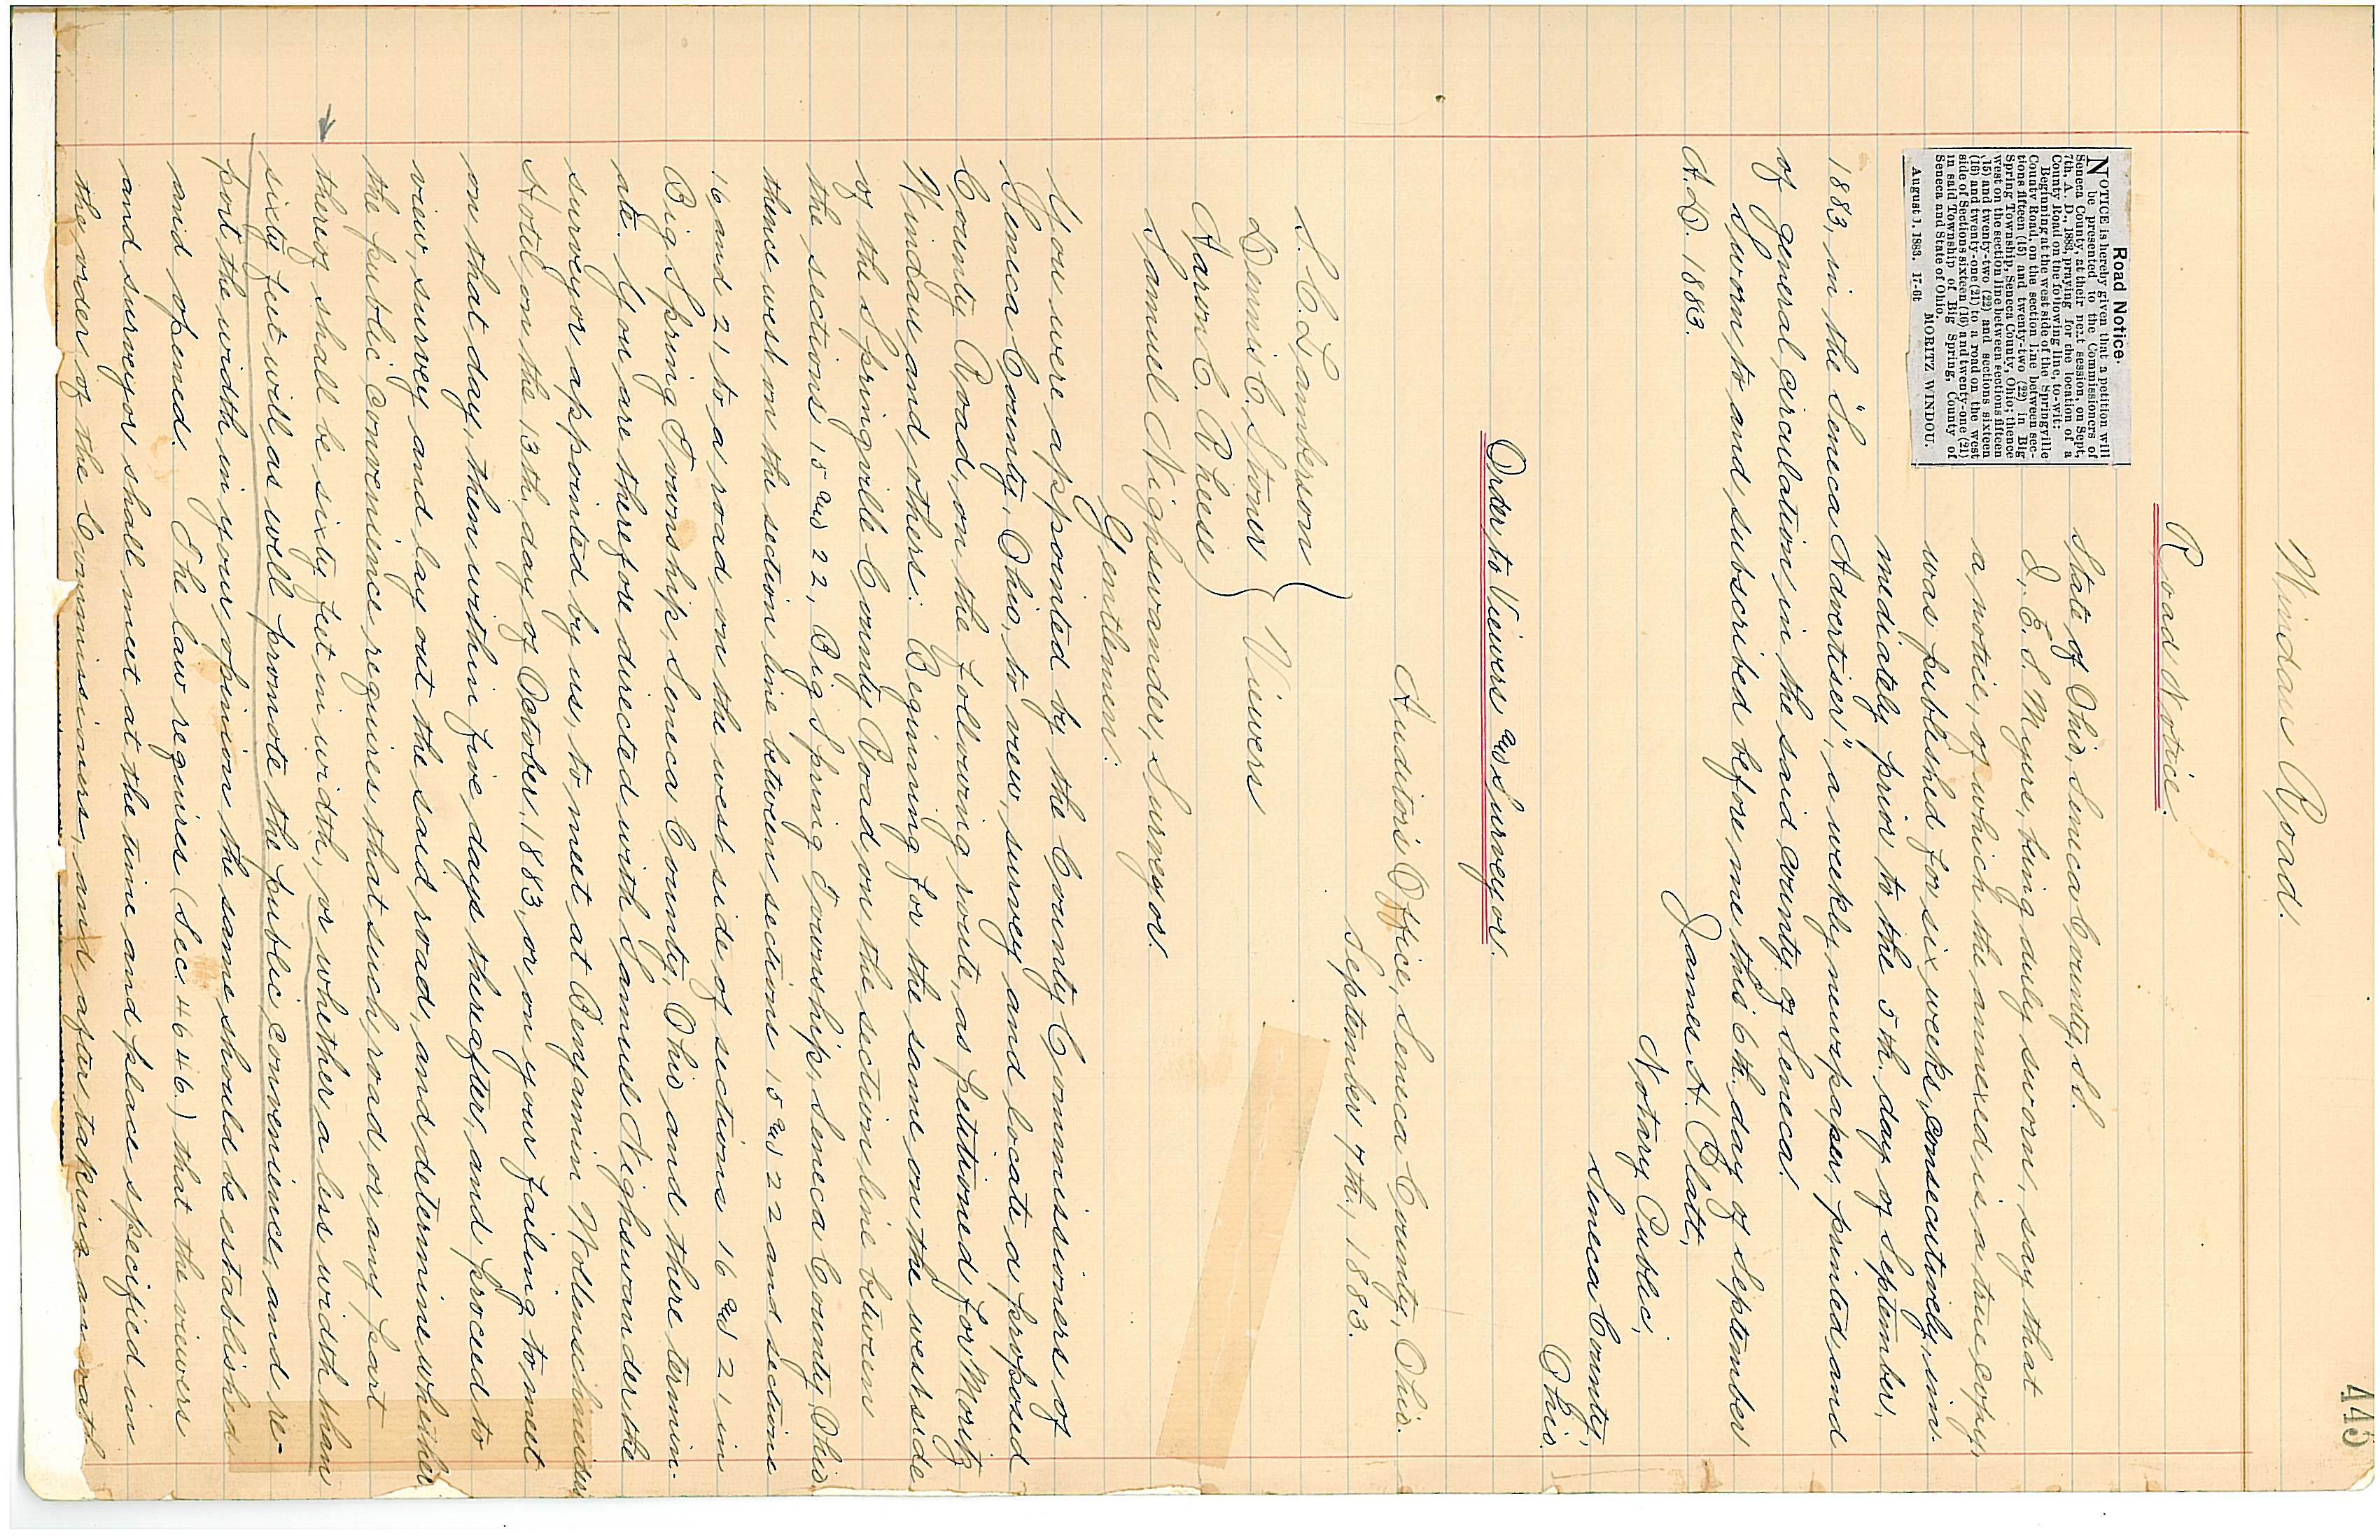 445
Windau Road.
Road Notice.
Road Notice.
NOTICE is hereby given that a petition will
be presented to the Commissioners of
Seneca County, at their next session, on Sept.
7th, A. D., 1883, praying for the location of a
County Road on the following line, to-wit:
Beginning at the west side of the Springville
County Road, on the section line between sec-
tions fifteen (15) and twenty-two (22) in Big
Spring Township, Seneca County, Ohio; thence
west on the section line between sections fifteen
(15) and twenty-two (22) and sections sixteen
(16) and twenty-one (21) to a road on the west
side of Sections sixteen (16) and twenty-one (21)
in said Township of Big Spring, County of
Seneca and State of Ohio.
MORITZ WINDOU.
August 1, 1883. 17-6t
State of Ohio, Seneca County, SS.
I, E. S. Myers, being duly sworn, say that
a notice, of which the annexed is a true copy,
was published for six weeks, consecutively, im-
mediately prior to the 5th. day of September,
1883, in the "Seneca Advertiser", a weekly newspaper, printed and
of general circulation in the said county of Seneca.
Sworn to and subscribed before me this 6th. day of September
A.D. 1883.
James H. Platt,
Notary Public,
Seneca County,
Ohio.
Order to Viewers and Surveyor.
Auditor's Office, Seneca County, Ohio.
September 7th., 1883.
S. C. Lamberson
Dennis C. Stoner } Viewers
Aaron C. Rhese
Samuel Nighswander, Surveyor.
Gentlemen:
You were appointed by the County Commissioners of
Seneca County, Ohio, to view, survey and locate a proposed
County Road, on the following route, as petitioned for Moritz
Windau and others: Beginning for the same on the west side
of the Springville County Road on the section line between
the sections 15 and 22, Big Spring Township, Seneca County, Ohio
thence west on the section line between sections 15 and 22 and sections
16 and 21 to a road on the west side of sections 16 and 21 in
Big Spring Township, Seneca County, Ohio and there termin-
ate. You are therefore directed with Samuel Nighswander the
surveyor appointed by us, to meet at Benjamin Wollenschneider
Hotel on the 13th. day of October, 1883, or on your failing to meet
on that day, then within five days thereafter, and proceed to
view, survey and lay out the said road, and determine whether
the public convenience requires that such road or any part
thereof shall be sixty feet in width, or whether a less width than
sixty feet will as well promote the public convenience, and re-
port the width in your opinion the same should be established
and opened. The law requires (Sec 4646.) that the viewers
and surveyor shall meet at the time and place specified in
the order of the Commissioners, and after taking an oath